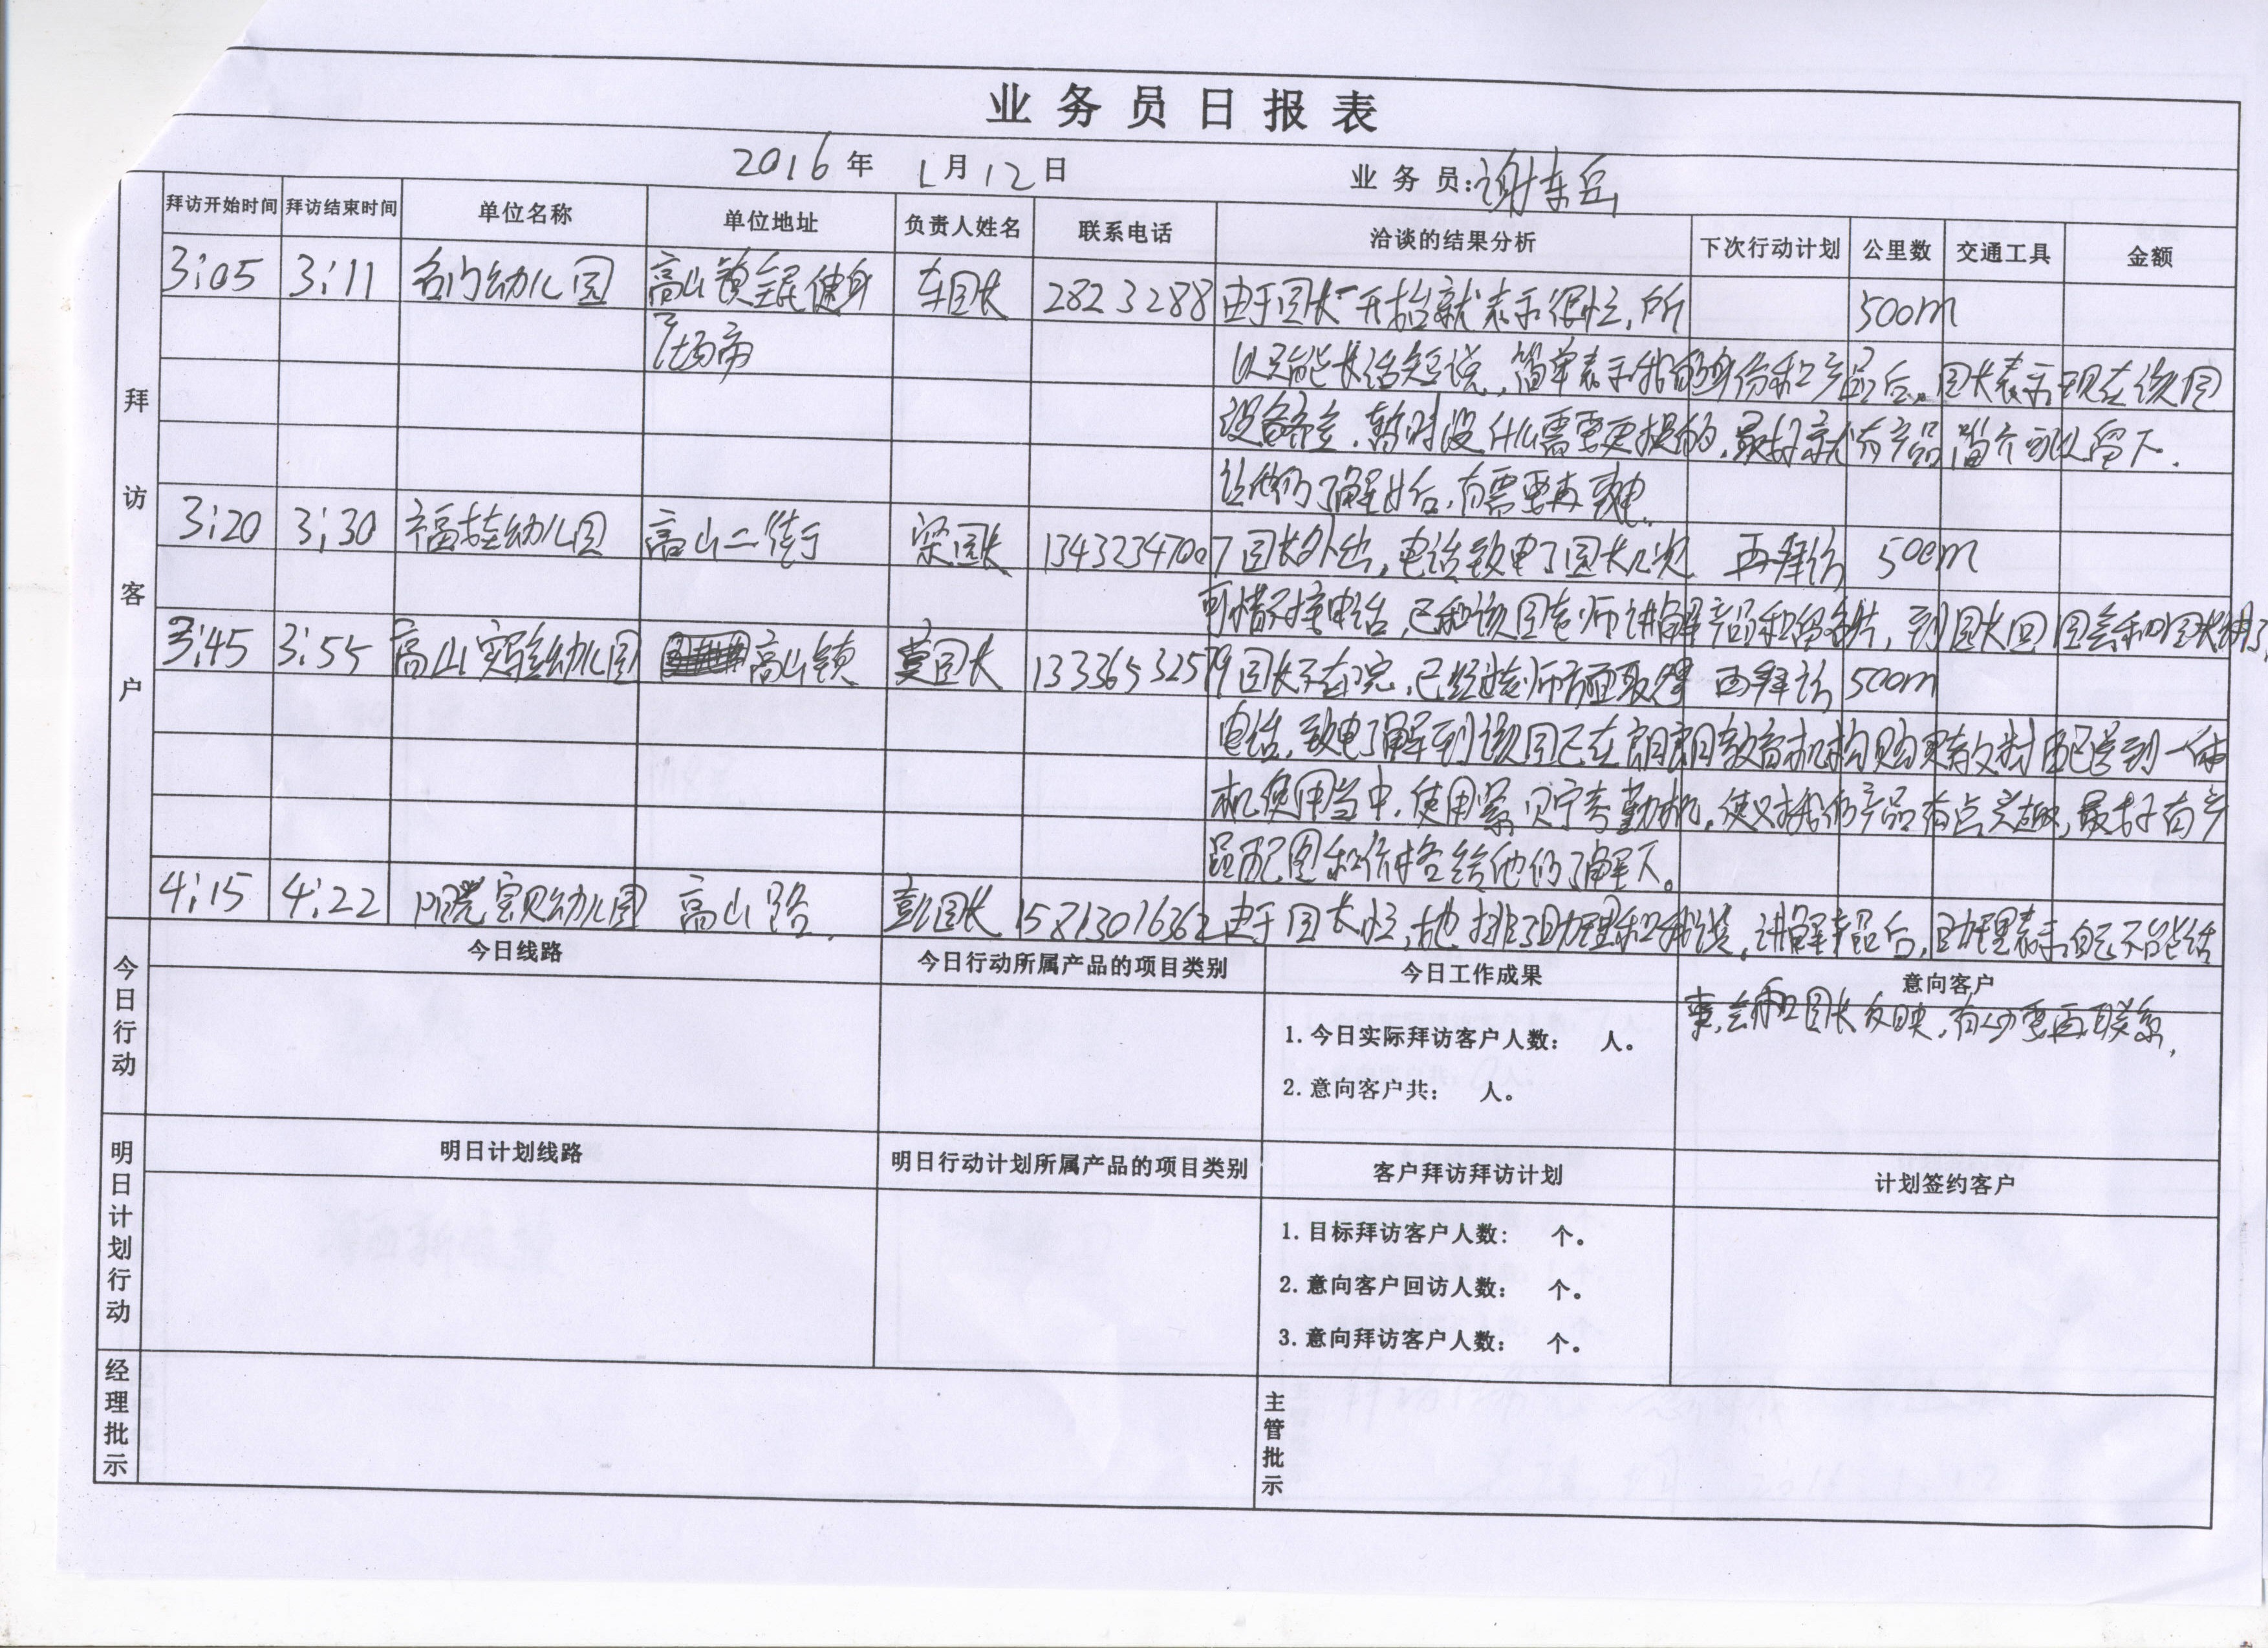 业务员日报表
2016年 1月12日 业务员:谢东岳
拜访客户
拜访开始时间 拜访结束时间 单位名称 单位地址 负责人姓名 联系电话 洽谈的结果分析 下次行动计划 公里数 交通工具 金额
3:05 3:11 名门幼儿园 高山镇全民健身 车园长 2823288 由于园长一开始就表示很忙,所 500m
广场旁
以只能长话短说,简单表示我的身份和产品后,园长表示现在该园
设备齐全,暂时没什么需要更换的,最好就有产品简介可以留下.
让他们了解好后,有需要再来电.
3:20 3:30 福娃幼儿园 高山二街 梁园长 13432347007 园长外出,电话致电了园长几次 再拜访 500m
可惜不接电话,已和该园老师讲解产品和留名片,到园长回园会和园长讲了,
3:45 3:55 高山实验幼儿园 高山镇 黄园长 13336532579 园长不在园,已经过老师方面取得 再拜访 500m
电话,致电了解到该园已在朗朗教育机构购买教材配送到一体
机使用当中,使用掌贝宁考勤机,使对我们产品有点兴趣,最好有产
品配图和价格给他们了解下。
4:15 4:22 阳光宝贝幼儿园 高山路. 彭园长 15813016362 由于园长忙,她排了助理和我谈,讲解产品后,助理表示自己不能话
事,会和园长反映,有必要再联系.
今日行动
今日线路 今日行动所属产品的项目类别 今日工作成果 意向客户
1.今日实际拜访客户人数: 人。
2.意向客户共: 人。
明日计划行动
明日计划线路 明日行动计划所属产品的项目类别 客户拜访拜访计划 计划签约客户
1.目标拜访客户人数: 个。
2.意向客户回访人数: 个。
3.意向拜访客户人数: 个。
经理批示 主管批示